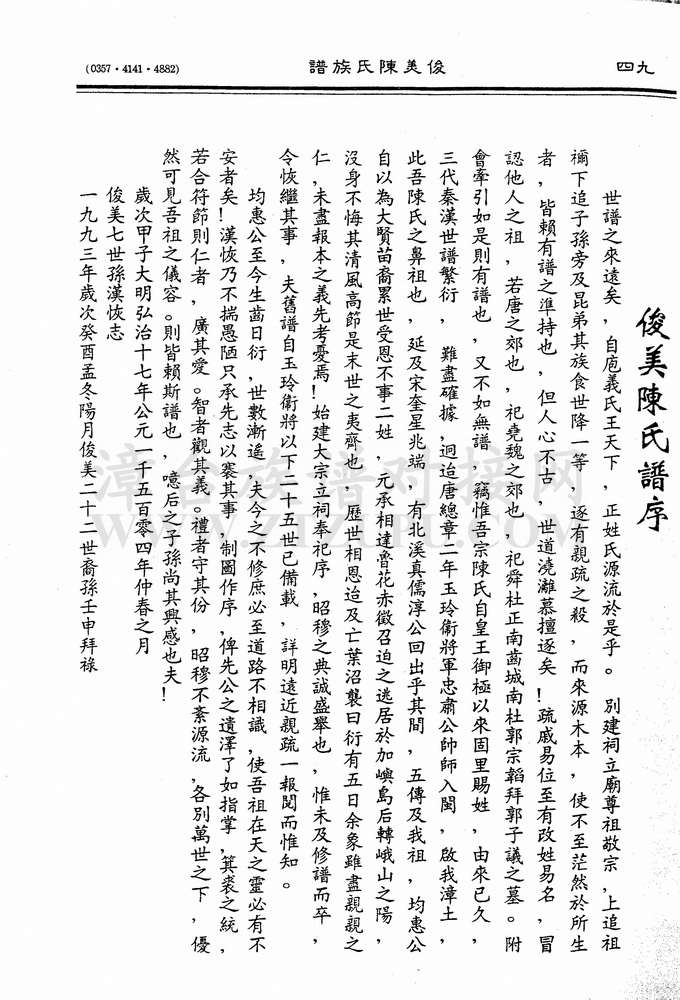 四九
俊美陳氏族譜
(0357·4141·4882)
俊美陳氏譜序
世譜之來遠矣，自庖義氏王天下，正姓氏源流於是乎。別建祠立廟尊祖敬宗，上追祖
禰下追子孫旁及昆弟其族食世降一等，逐有親疏之殺，而來源木本，使不至茫然於所生
者，皆賴有譜之準持也，但人心不古，世道澆灕慕擅逐矣！疏戚易位至有改姓易名，冒
認他人之祖，若唐之郊也，祀堯魏之郊也，祀舜杜正南凿城南杜郭宗韜拜郭子議之墓。附
會牽引如是則有譜也，又不如無譜，竊惟吾宗陳氏自皇王御極以來固里賜姓，由來已久，
三代秦漢世譜繁衍，難盡確據，迥迨唐總章二年玉玲衛將軍忠肅公帥師入閩，啟我漳土，
此吾陳氏之鼻祖也，延及宋奎星兆端，有北溪真儒淳公回出乎其間，五傳及我祖，均惠公
自以為大賢苗裔累世受恩不事二姓，元承相達魯花赤徵召迫之逃居於加嶼島后轉峨山之陽，
沒身不悔其清風高節是末世之夷齊也，歷世相恩迨及亡葉沼襲曰衍有五日余象雖盡親親之
仁，未盡報本之義先考憂焉！始建大宗立祠奉祀序，昭穆之典誠盛舉也，惟未及修譜而卒，
令恢繼其事，夫舊譜自玉玲衛將以下二十五世已備載，詳明遠近親疏一報閱而惟知。
均惠公至今生齒日衍，世數漸遙，夫今之不修庶必至道路不相識，使吾祖在天之靈必有不
安者矣！漢恢乃不揣愚陋只承先志以襄其事，制圖作序，俾先公之遺澤了如指掌，箕裘之統，
若合符節則仁者，廣其愛。智者觀其義。禮者守其份，昭穆不紊源流，各別萬世之下，優
然可見吾祖之儀容。則皆賴斯譜也，噫后之子孫尚其興感也夫！
歲次甲子大明弘治十七年公元一千五百零四年仲春之月
俊美七世孫漢恢志
一九九三年歲次癸酉孟冬陽月俊美二十二世裔孫壬申拜祿
漳台族谱对接网
WWW.ZTZUPU.COM